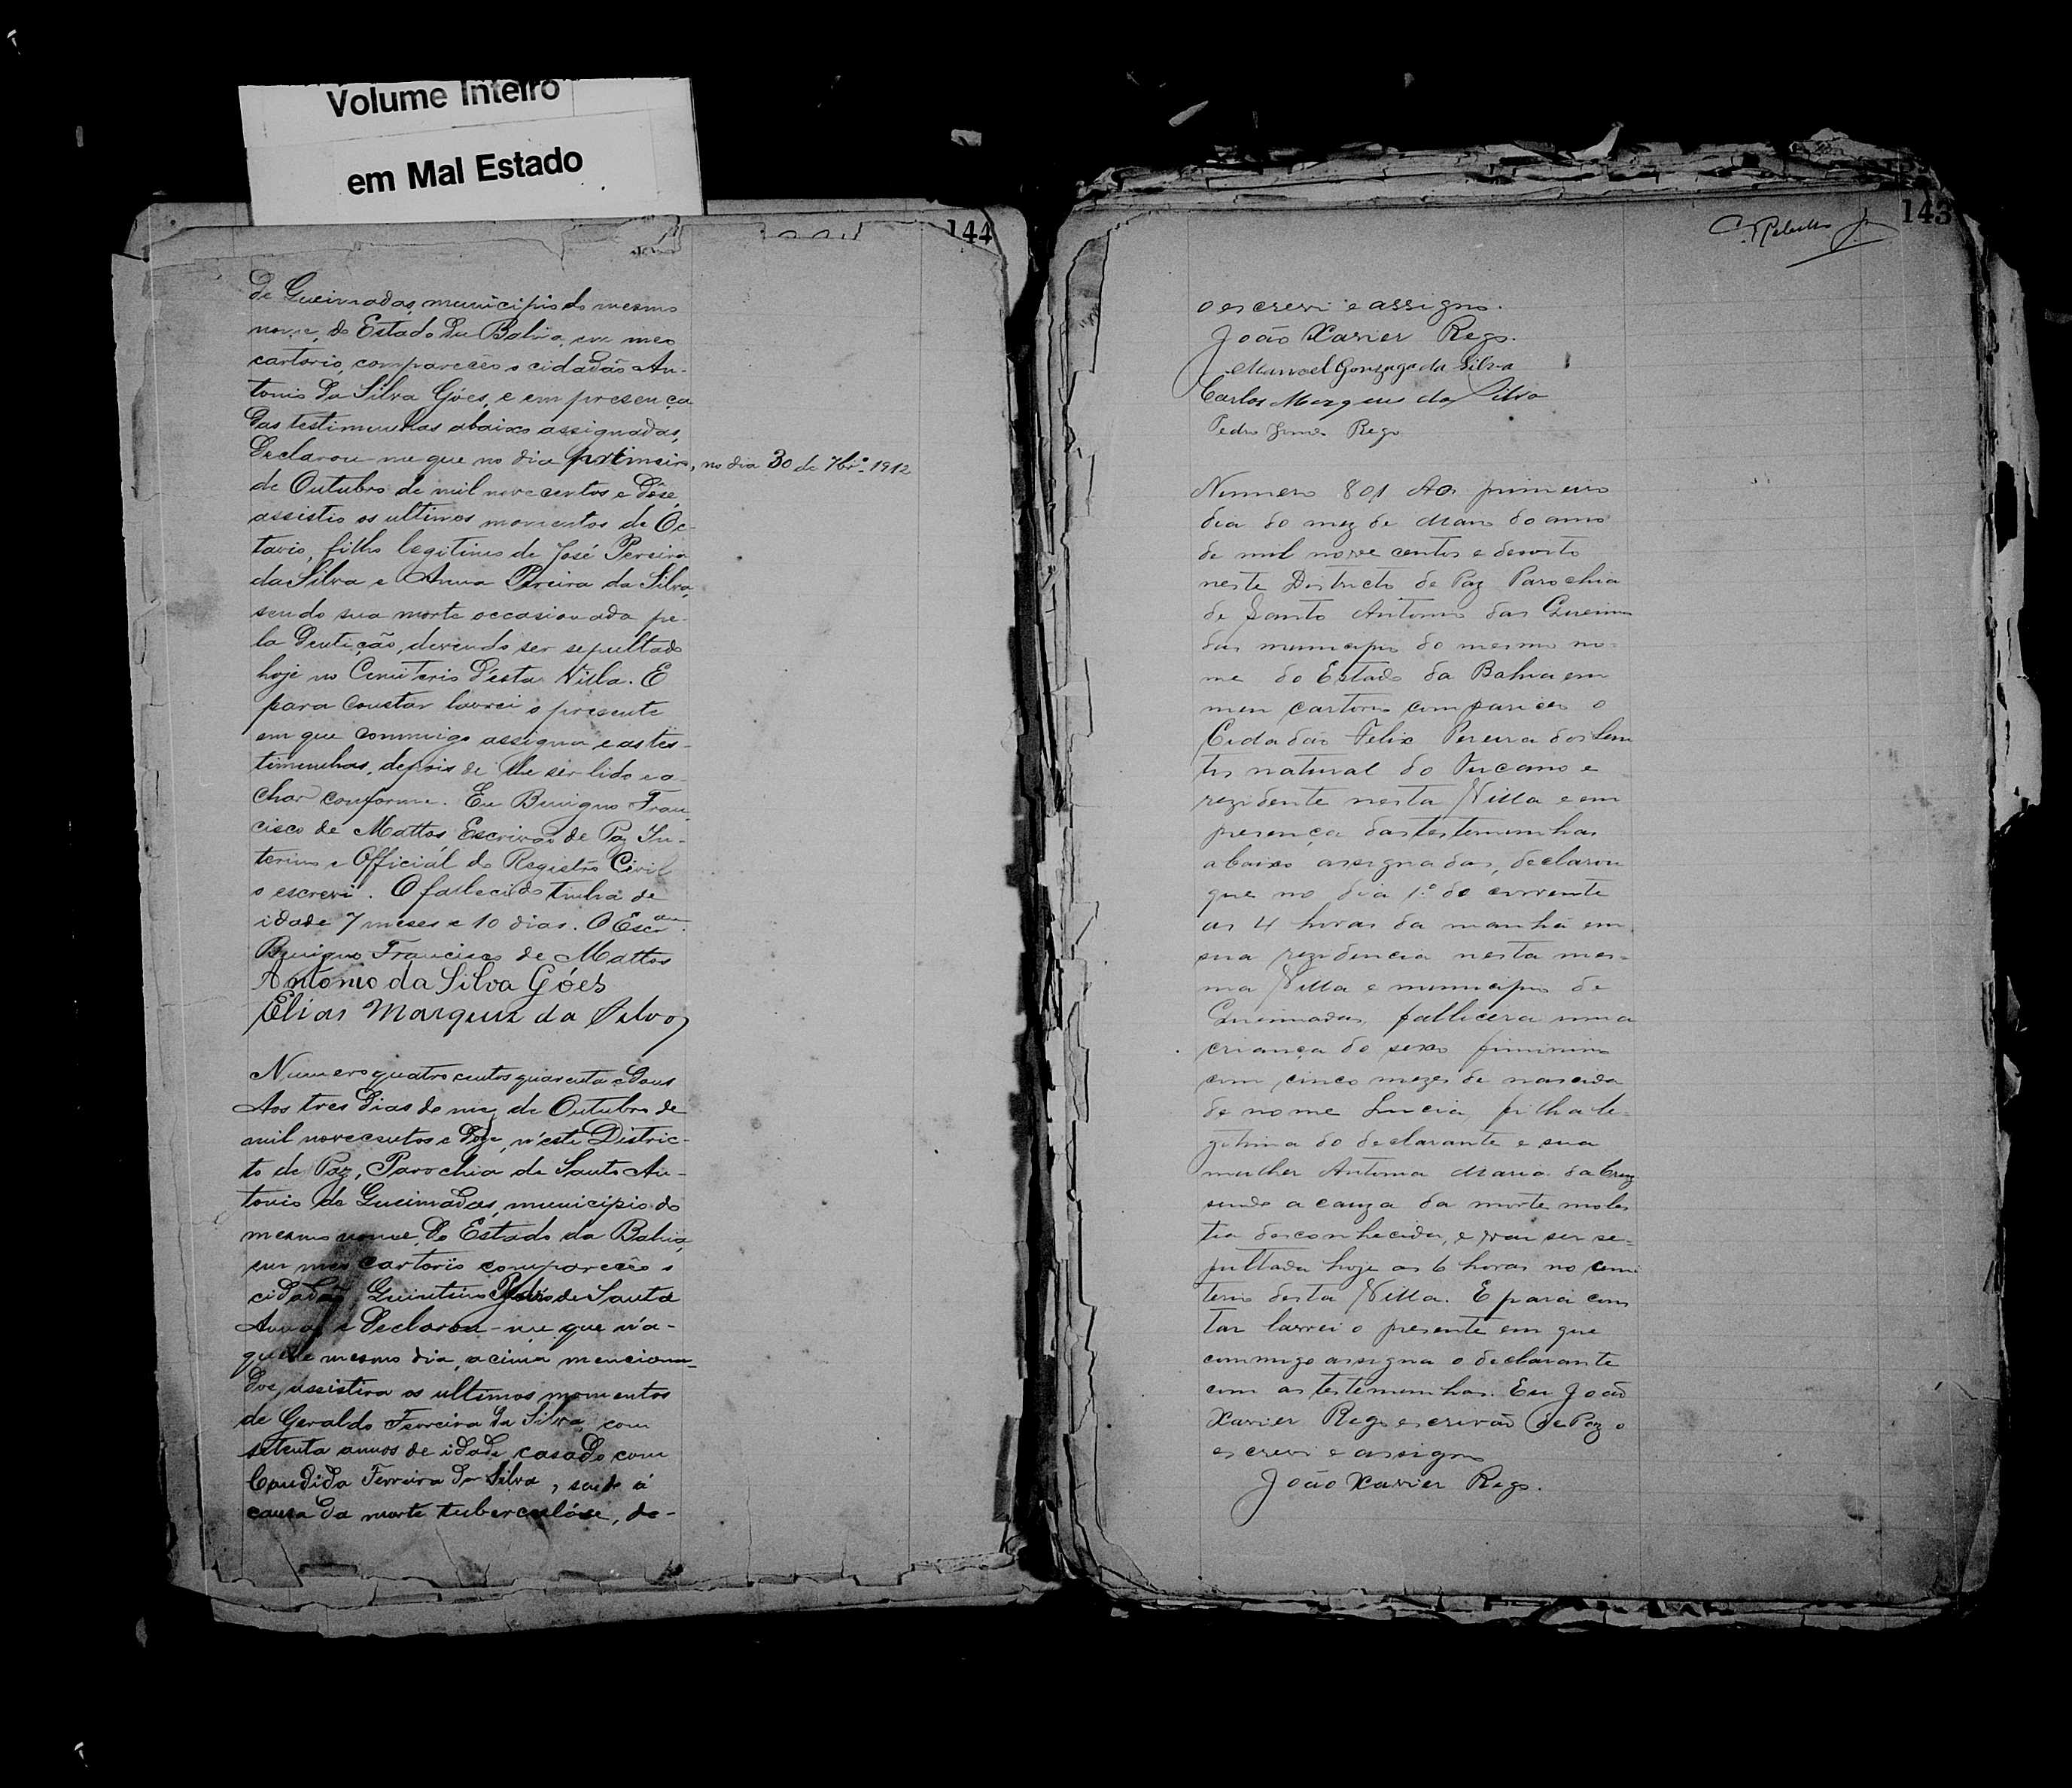 Volume Inteiro
em Mal Estado
144
de Queimadas, municipio do mesmo
nome, do Estado da Bahia, em meo
cartorio, compareceo o cidadão An-
tonio da Silva Góes, e em presença
das testimunhas abaixo assignadas,
Declarou-me que no dia primeiro, no dia 30 de 7br.º 1912
de Outubro de mil nove centos e dóse,
assistio os ultimos momentos de Oc-
tavio, filho legitimo de José Pereira
da Silva e Anna Pereira da Silva,
sendo sua morte occasionada pe-
la Dentição, devendo ser sepultado
hoje no Cemiterio d'esta Villa. E
para constar lavrei o presente
em que commigo assigna e as tes-
timunhas, depois de lhe ser lido e a-
char conforme. Eu Benigno Fran
cisco de Mattos Escrivão de Paz In-
terino e Official do Registro Civil
o escrevi. O fallecido tinha de
idade 7 meses e 10 dias. O Escr.am
Benigno Francisco de Mattos
Antonio da Silva Góes
Elias Marques da Silva
Numero quatro centos quarenta e dous
Aos tres dias do mez de Outubro de
mil nove centos e doze, n'este Distric-
to de Paz, Parochia de Santo An-
tonio de Queimadas, municipio do
mesmo nome, do Estado da Bahia,
em meo cartorio compareceo o
cidadão Quintino de Santa
Anna e Declarou-me que n'a-
quelle mesmo dia, acima menciona-
dos, assistira os ultimos momentos
de Geraldo Ferreira da Silva, com
setenta annos de idade, casado com
Candida Ferreira da Silva, sendo á
causa da morte tuberculóse, de-
143
o escrevi e assigno.
João Xavier Rego.
Manoel Gonzaga da Silva
Carlos Marques da Silva
Pedro Rego
Numero 801 Ao primeiro
dia do mez de Maio do anno
de mil nove centos e desoito
neste Districto de Paz Parochia
de Santo Antonio das Queima
das municipio do mesmo no-
me do Estado da Bahia em
meu cartorio compareceo o
Cidadão Felix Pereira dos San
tos natural do Tucano e
rezidente nesta Villa e em
presença das testemunhas
abaixo assignadas, declarou
que no dia 1º do corrente
as 4 horas da manhã em
sua rezidencia nesta mes-
ma Villa e municipio de
Queimadas, fallicera uma
criança do sexo feminino
com cinco mezes de nascida
de nome Lucia, filha le-
gitima do declarante e sua
mulher Antonia Maria da Cruz
sendo a cauza da morte moles
tia desconhecida, e vai ser se-
pultada hoje as 6 horas no cemi
terio desta Villa. E para cons
tar lavrei o presente em que
commigo assigna o declarante
com as testemunhas. Eu João
Xavier Rego escrivão de Paz o
escrevi e assigno
João Xavier Rego.